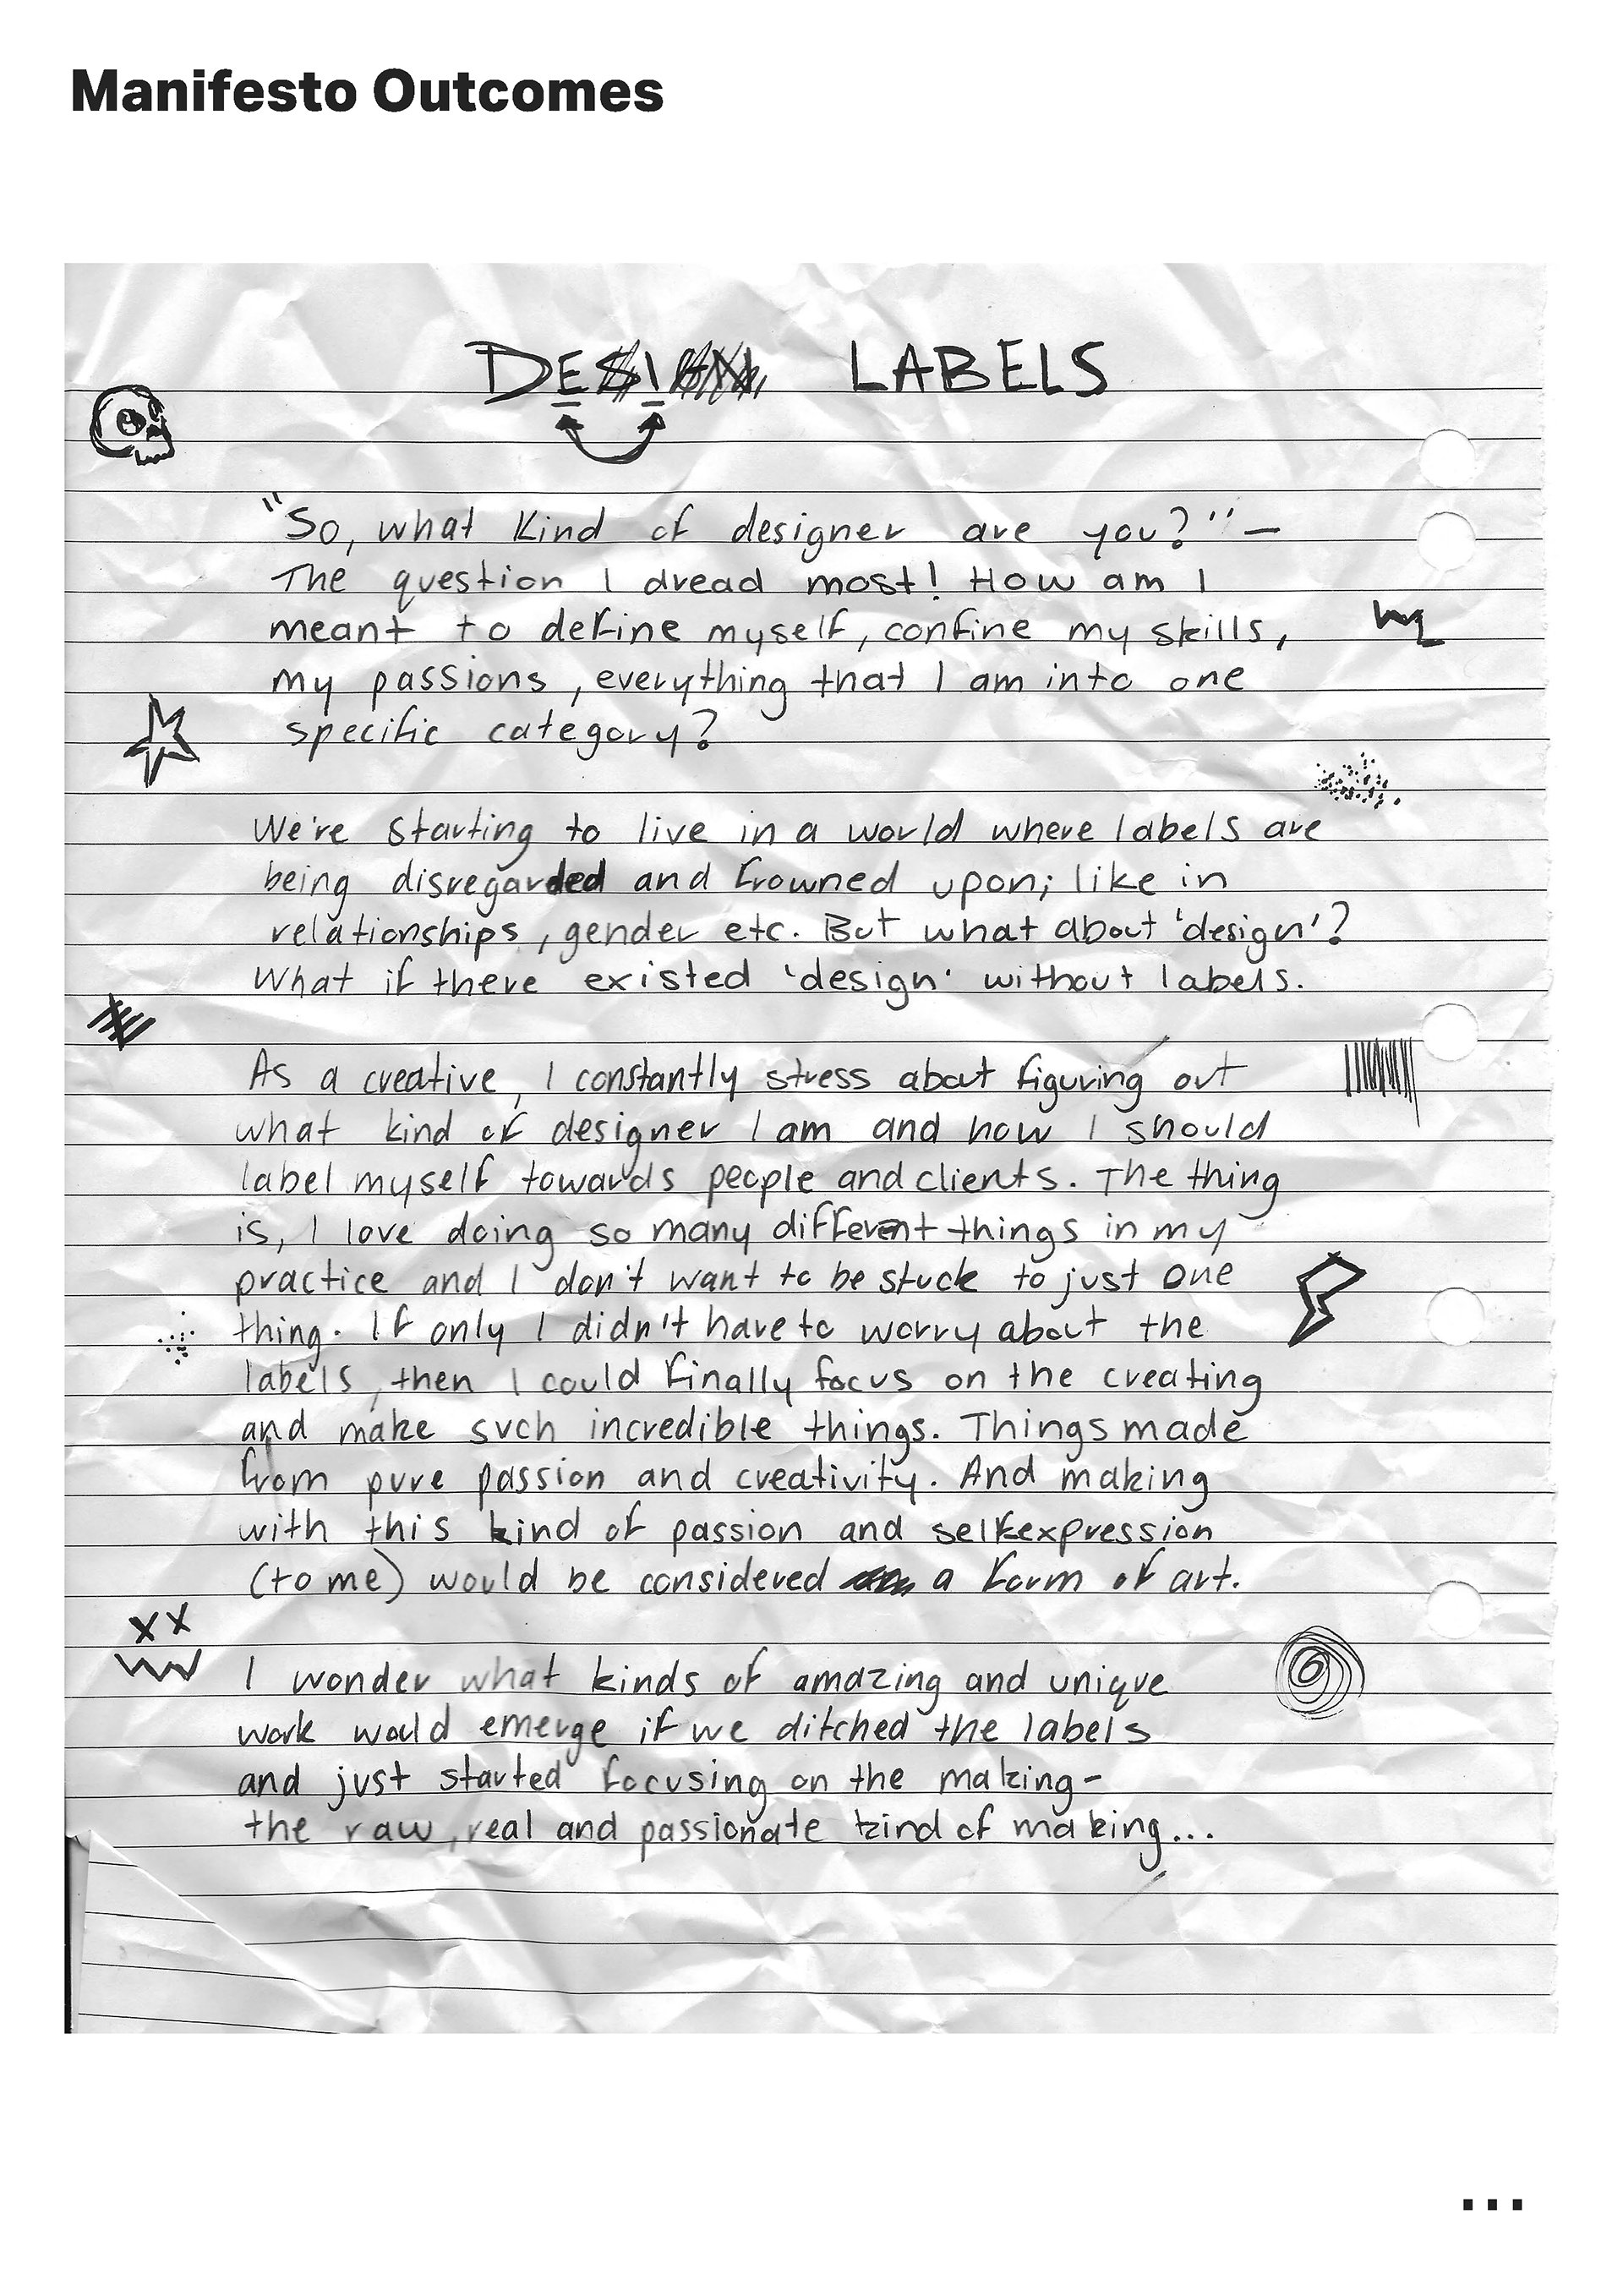 Manifesto Outcomes
DESIGN LABELS
"So, what kind of designer are you?" –
The question I dread most! How am I
meant to define myself, confine my skills,
my passions, everything that I am into one
specific category?
We're starting to live in a world where labels are
being disregarded and frowned upon; like in
relationships, gender etc. But what about 'design'?
What if there existed 'design' without labels.
As a creative, I constantly stress about figuring out
what kind of designer I am and how I should
label myself towards people and clients. The thing
is, I love doing so many different things in my
practice and I don't want to be stuck to just one
thing. If only I didn't have to worry about the
labels, then I could finally focus on the creating
and make such incredible things. Things made
from pure passion and creativity. And making
with this kind of passion and selfexpression
(to me) would be considered a form of art.
I wonder what kinds of amazing and unique
work would emerge if we ditched the labels
and just started focusing on the making –
the raw, real and passionate kind of making...
...